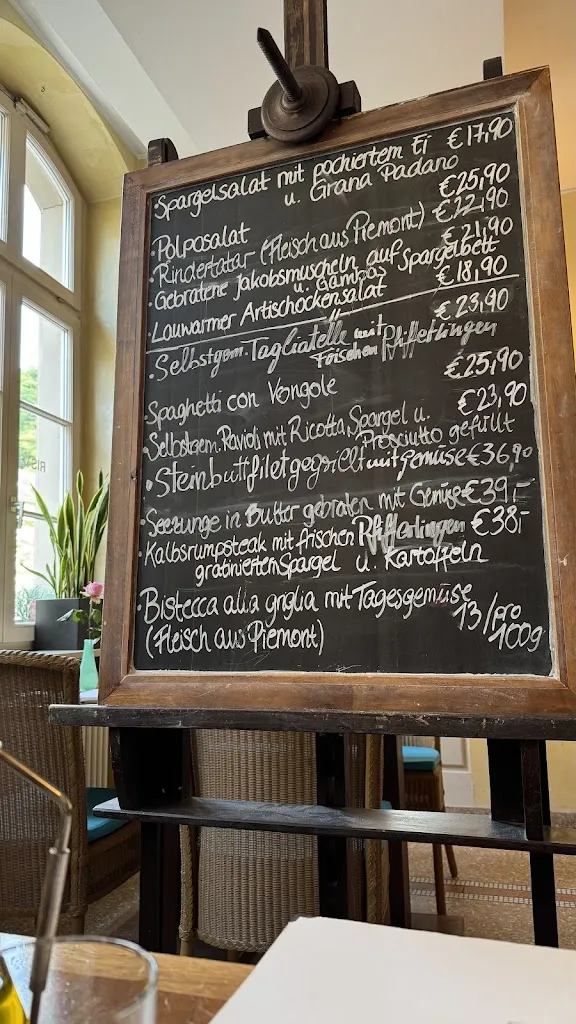 ·Spargelsalat mit pochiertem Ei €17,90
u. Grana Padano
·Polposalat €25,90
·Rindertatar (Fleisch aus Piemont) €22,90
·Gebratene Jakobsmuscheln auf Spargelbett €21,90
u. Gambas
·Lauwarmer Artischockensalat €18,90
·Selbstgem. Tagliatelle mit €23,90
frischen Pfifferlingen
·Spaghetti con Vongole €25,90
·Selbstgem. Ravioli mit Ricotta, Spargel u. €23,90
Prosciutto gefüllt
·Steinbuttfilet gegrillt mit Gemüse €36,90
·Seezunge in Butter gebraten mit Gemüse €39,-
·Kalbsrumpsteak mit frischen Pfifferlingen €38,-
gratinierten Spargel u. Kartoffeln
·Bistecca alla griglia mit Tagesgemüse
(Fleisch aus Piemont) 13/pro
100g